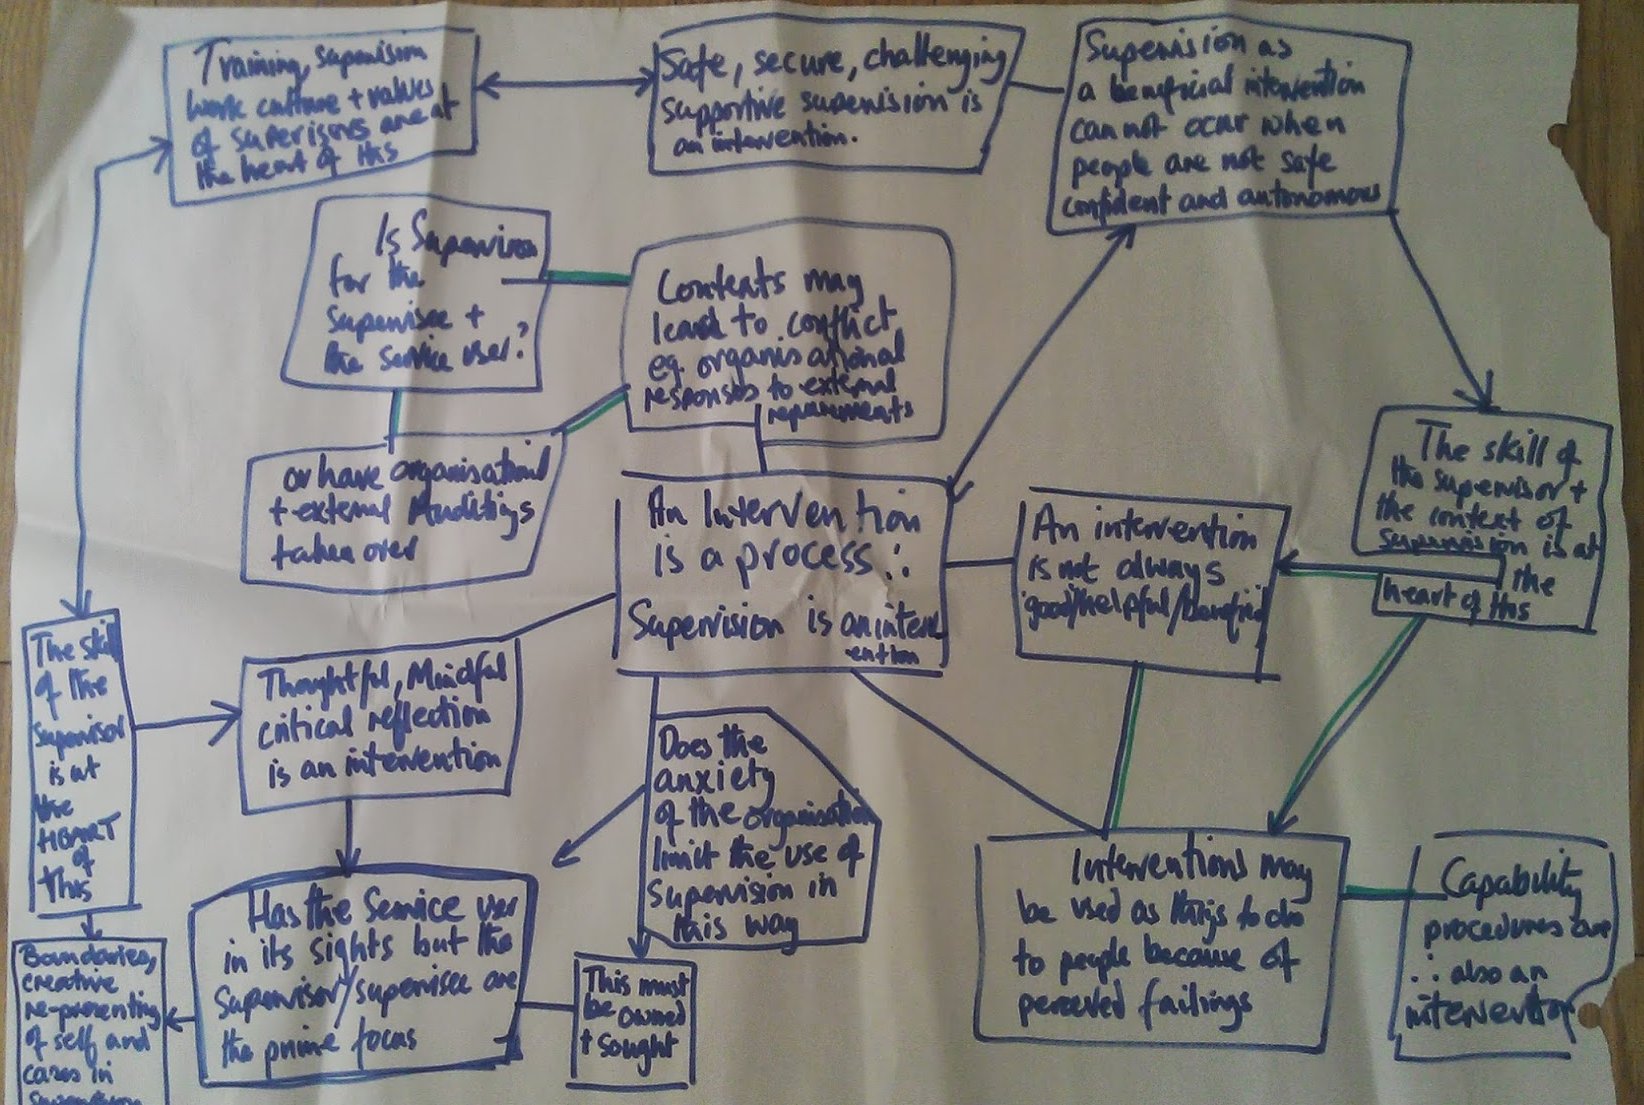 Training, supervision
work culture + values
of superisors are at
the heart of this
Safe, secure, challenging
supportive supervision is
an intervention.
Supervision as
a beneficial intervention
cannot occur when
people are not safe
confident and autonomous
Is Supervision
for the
supervisee +
the service user?
Contexts may
lead to conflict
eg. organisational
responses to external
requirements
or have organisational
+ external Auditings
taken over
An Intervention
is a process ∴
Supervision is an interv
ention
An intervention
is not always
good/helpful/beneficial
The skill of
the supervisor +
the context of
supervision is at
the
heart of this
The skill
of the
supervisor
is at
the
HEART
of
this
Thoughtful, Mindful
critical reflection
is an intervention
Does the
anxiety
of the organisation
limit the use of
supervision in
this way
Has the Service user
in its sights but the
supervisor/supervisee are
the prime focus
This must
be owned
+ sought
Interventions may
be used as things to do
to people because of
perceived failings
Capability
procedures are
∴ also an
intervention
Boundaries,
creative
re-presenting
of self and
cases in
supervision